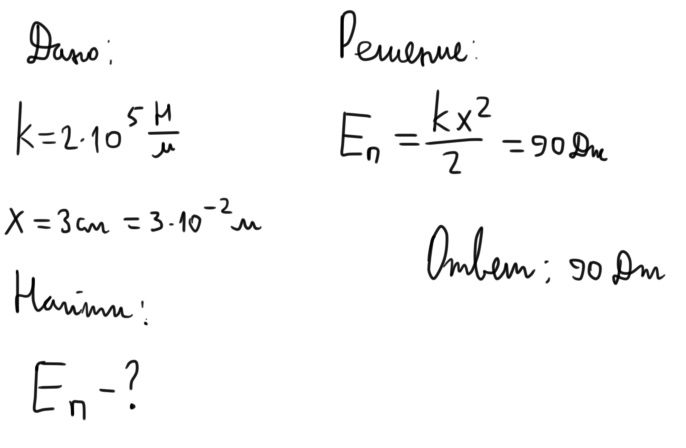 Дано:
k = 2·10⁵ Н/м
x = 3 см = 3·10⁻² м
Найти:
Eₙ – ?
Решение:
Eₙ = kx²/2 = 90 Дж
Ответ: 90 Дж